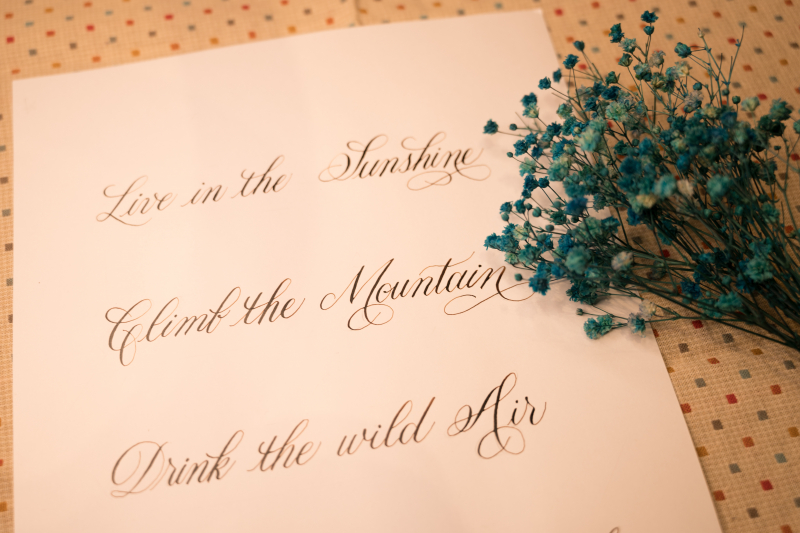 Live in the Sunshine
Climb the Mountain
Drink the wild Air